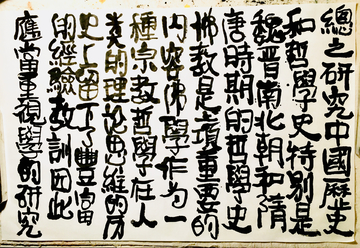 總之研究中國歷史
和哲學史特别是
魏晋南北朝和隋
唐時期的哲學史
佛教是一項重要的
内容佛學作为一
種宗教哲學在人
类的理论思维的历
史上留下了豐富
的經驗教訓因此
應當重視學的研究